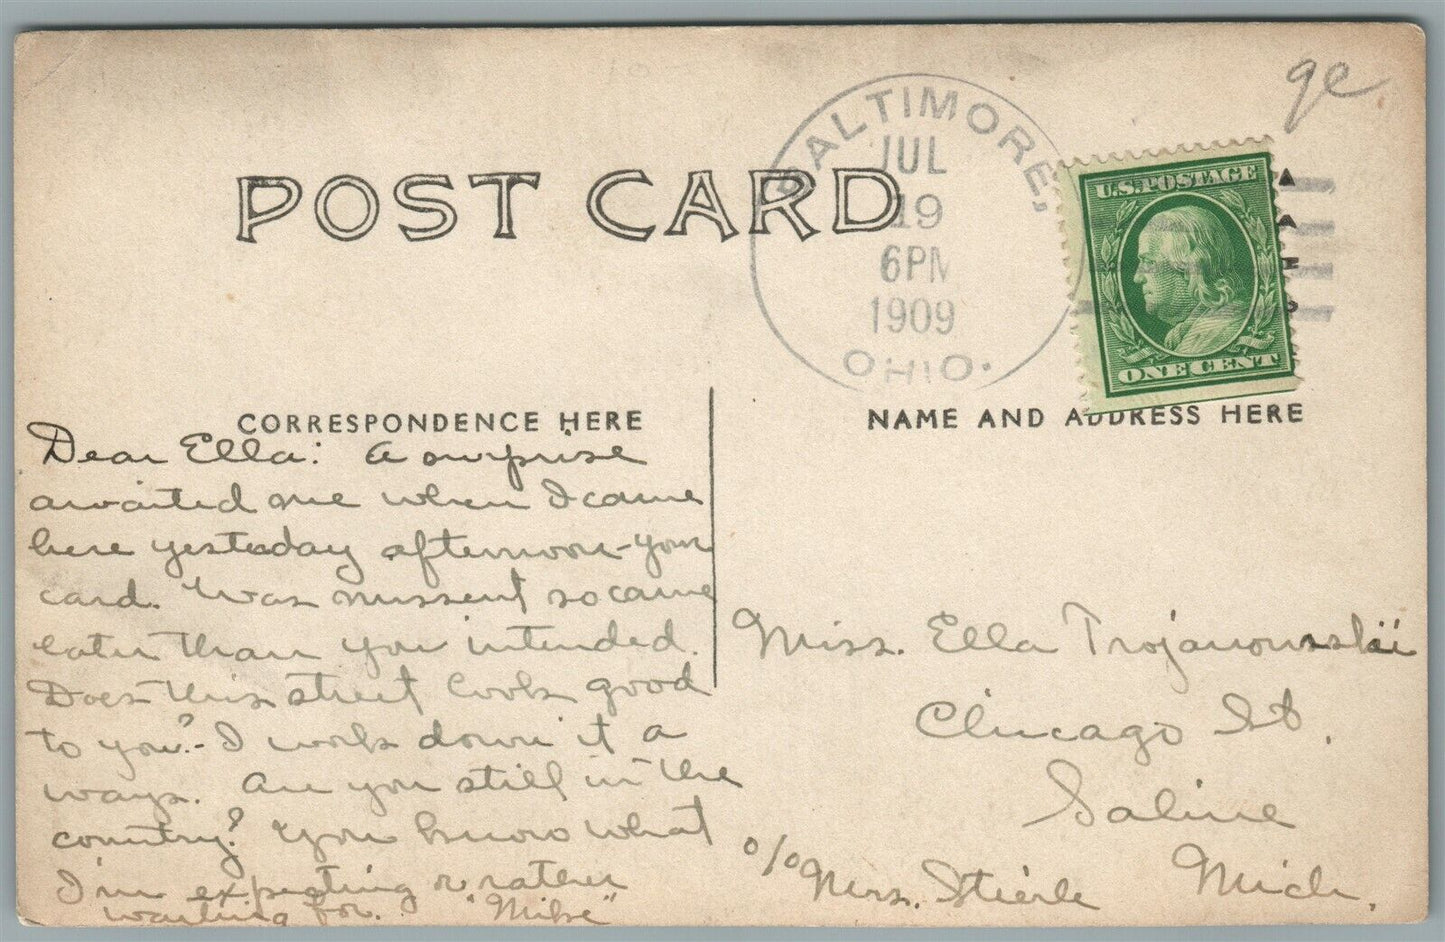 POST CARD
BALTIMORE,
JUL
19
6PM
1909
OHIO.
ge
U.S. POSTAGE
ONE CENT
CORRESPONDENCE HERE
NAME AND ADDRESS HERE
Dear Ella: A surprise
awaited me when I came
here yesterday afternoon-your
card. Was missent so came
later than you intended.
Does this street look good
to you?- I work down it a
ways. Are you still in the
country? You know what
I'm expecting or rather
waiting for. "Mike"
Miss. Ella Trojanowskii
Chicago St.
Saline
Mich.
o/o Mrs. Stierle